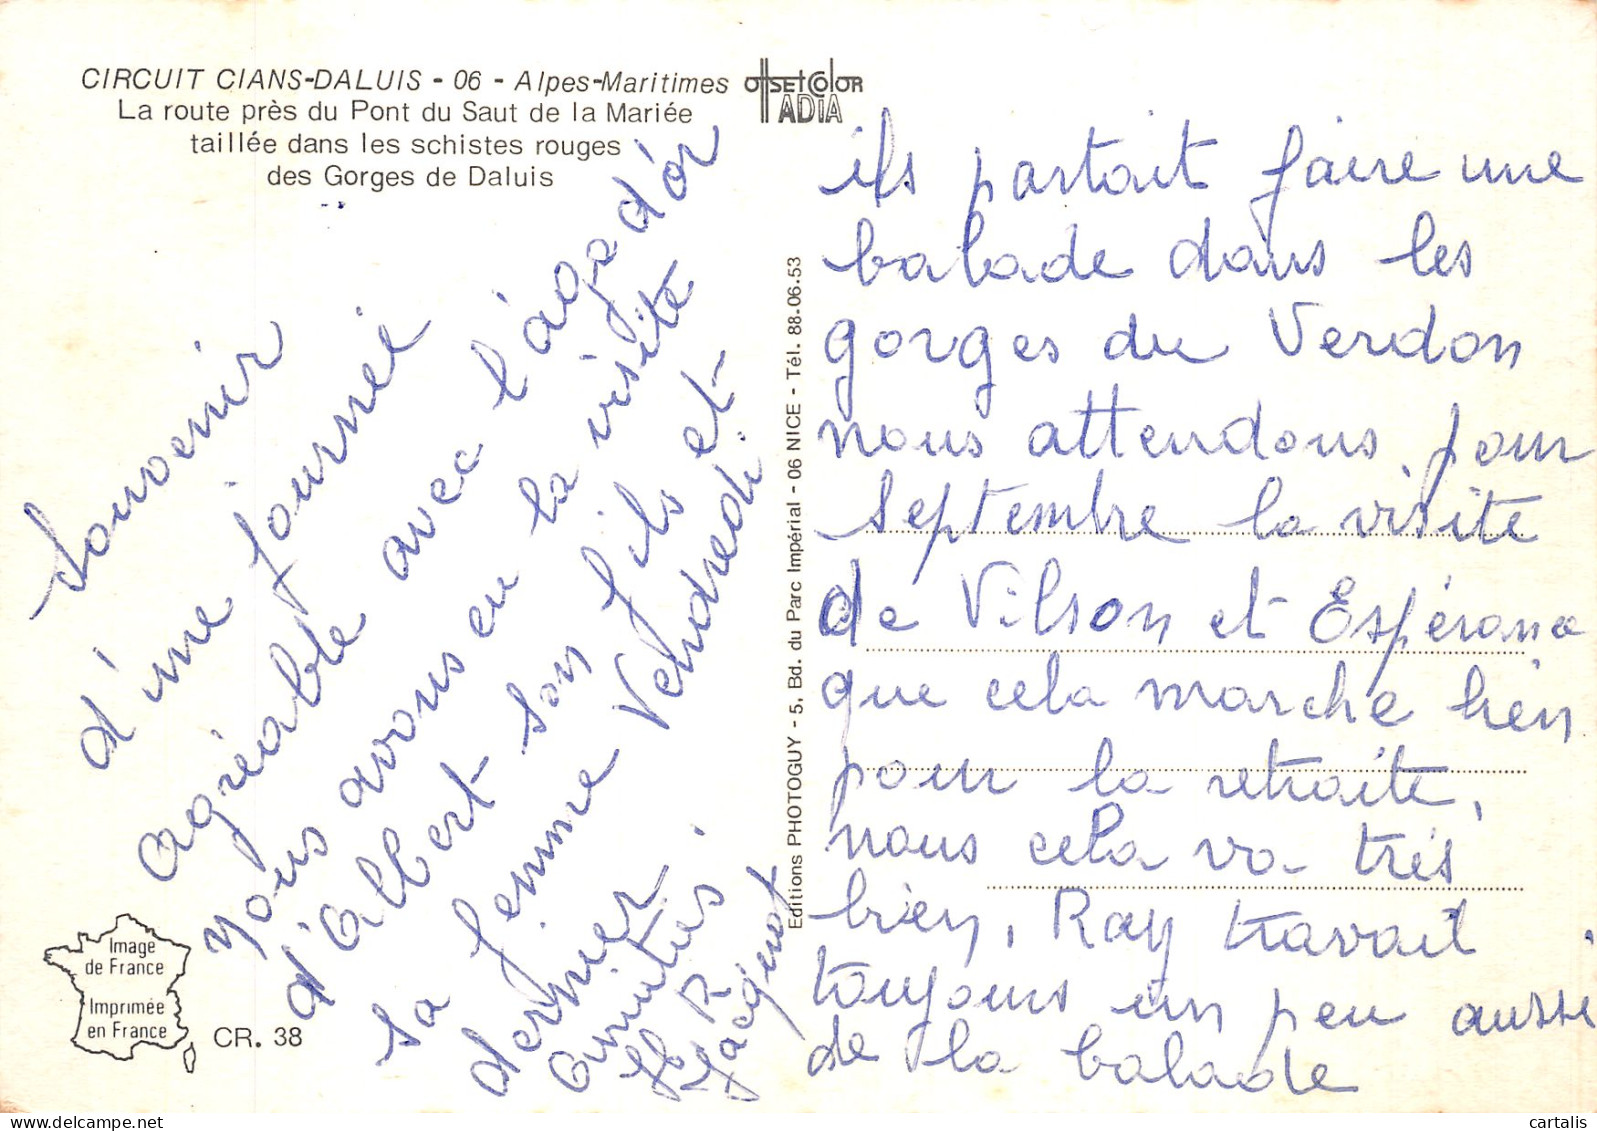 CIRCUIT CIANS-DALUIS - 06 - Alpes-Maritimes
La route près du Pont du Saut de la Mariée
taillée dans les schistes rouges
des Gorges de Daluis
OffSEtColOR
ADIA
Souvenir
d'une journée
agréable avec l'âge d'or
nous avons eu la visite
d'Albert son fils et
sa femme Vendredi
dernier.
amitiés
R
Jacquot
ils partait faire une
balade dans les
gorges du Verdon
nous attendons pour
septembre la visite
de Vilson et Espérance
que cela marche bien
pour la retraite,
nous cela va très
bien, Ray travail
toujours un peu aussi
de la balade
Editions PHOTOGUY - 5, Bd. du Parc Impérial - 06 NICE - Tél. 88.06.53
Image
de France
Imprimée
en France
CR. 38
cartalis